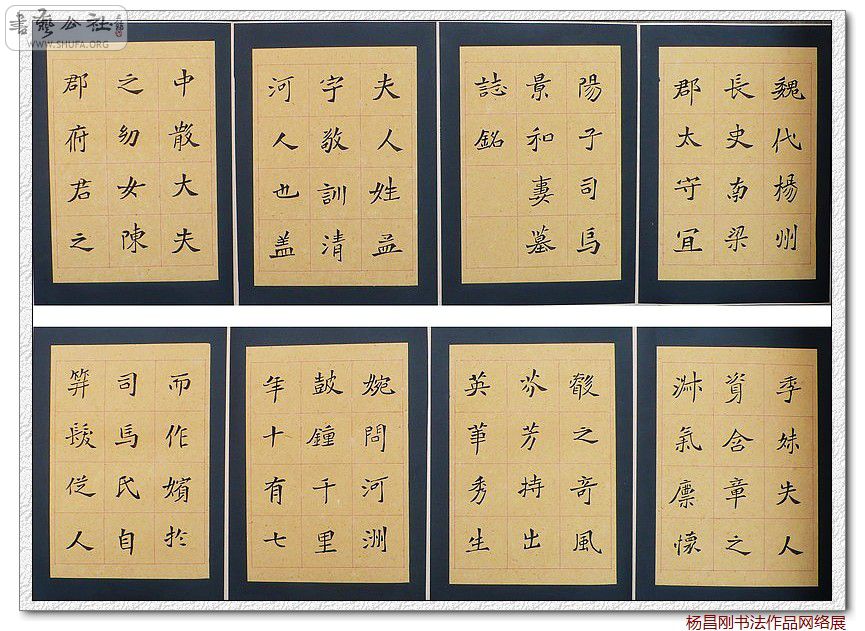 書藝公社
WWW.SHUFA.ORG
魏代楊州
長史南梁
郡太守宜
陽子司馬
景和妻墓
誌銘
夫人姓孟
字敬訓清
河人也盖
中散大夫
之幼女陳
郡府君之
季妹夫人
資含章之
淑氣廪懷
叡之奇風
芬芳持出
英華秀生
婉問河洲
鼓鐘千里
年十有七
而作嬪扵
司馬氏自
笄髮従人
杨昌刚书法作品网络展